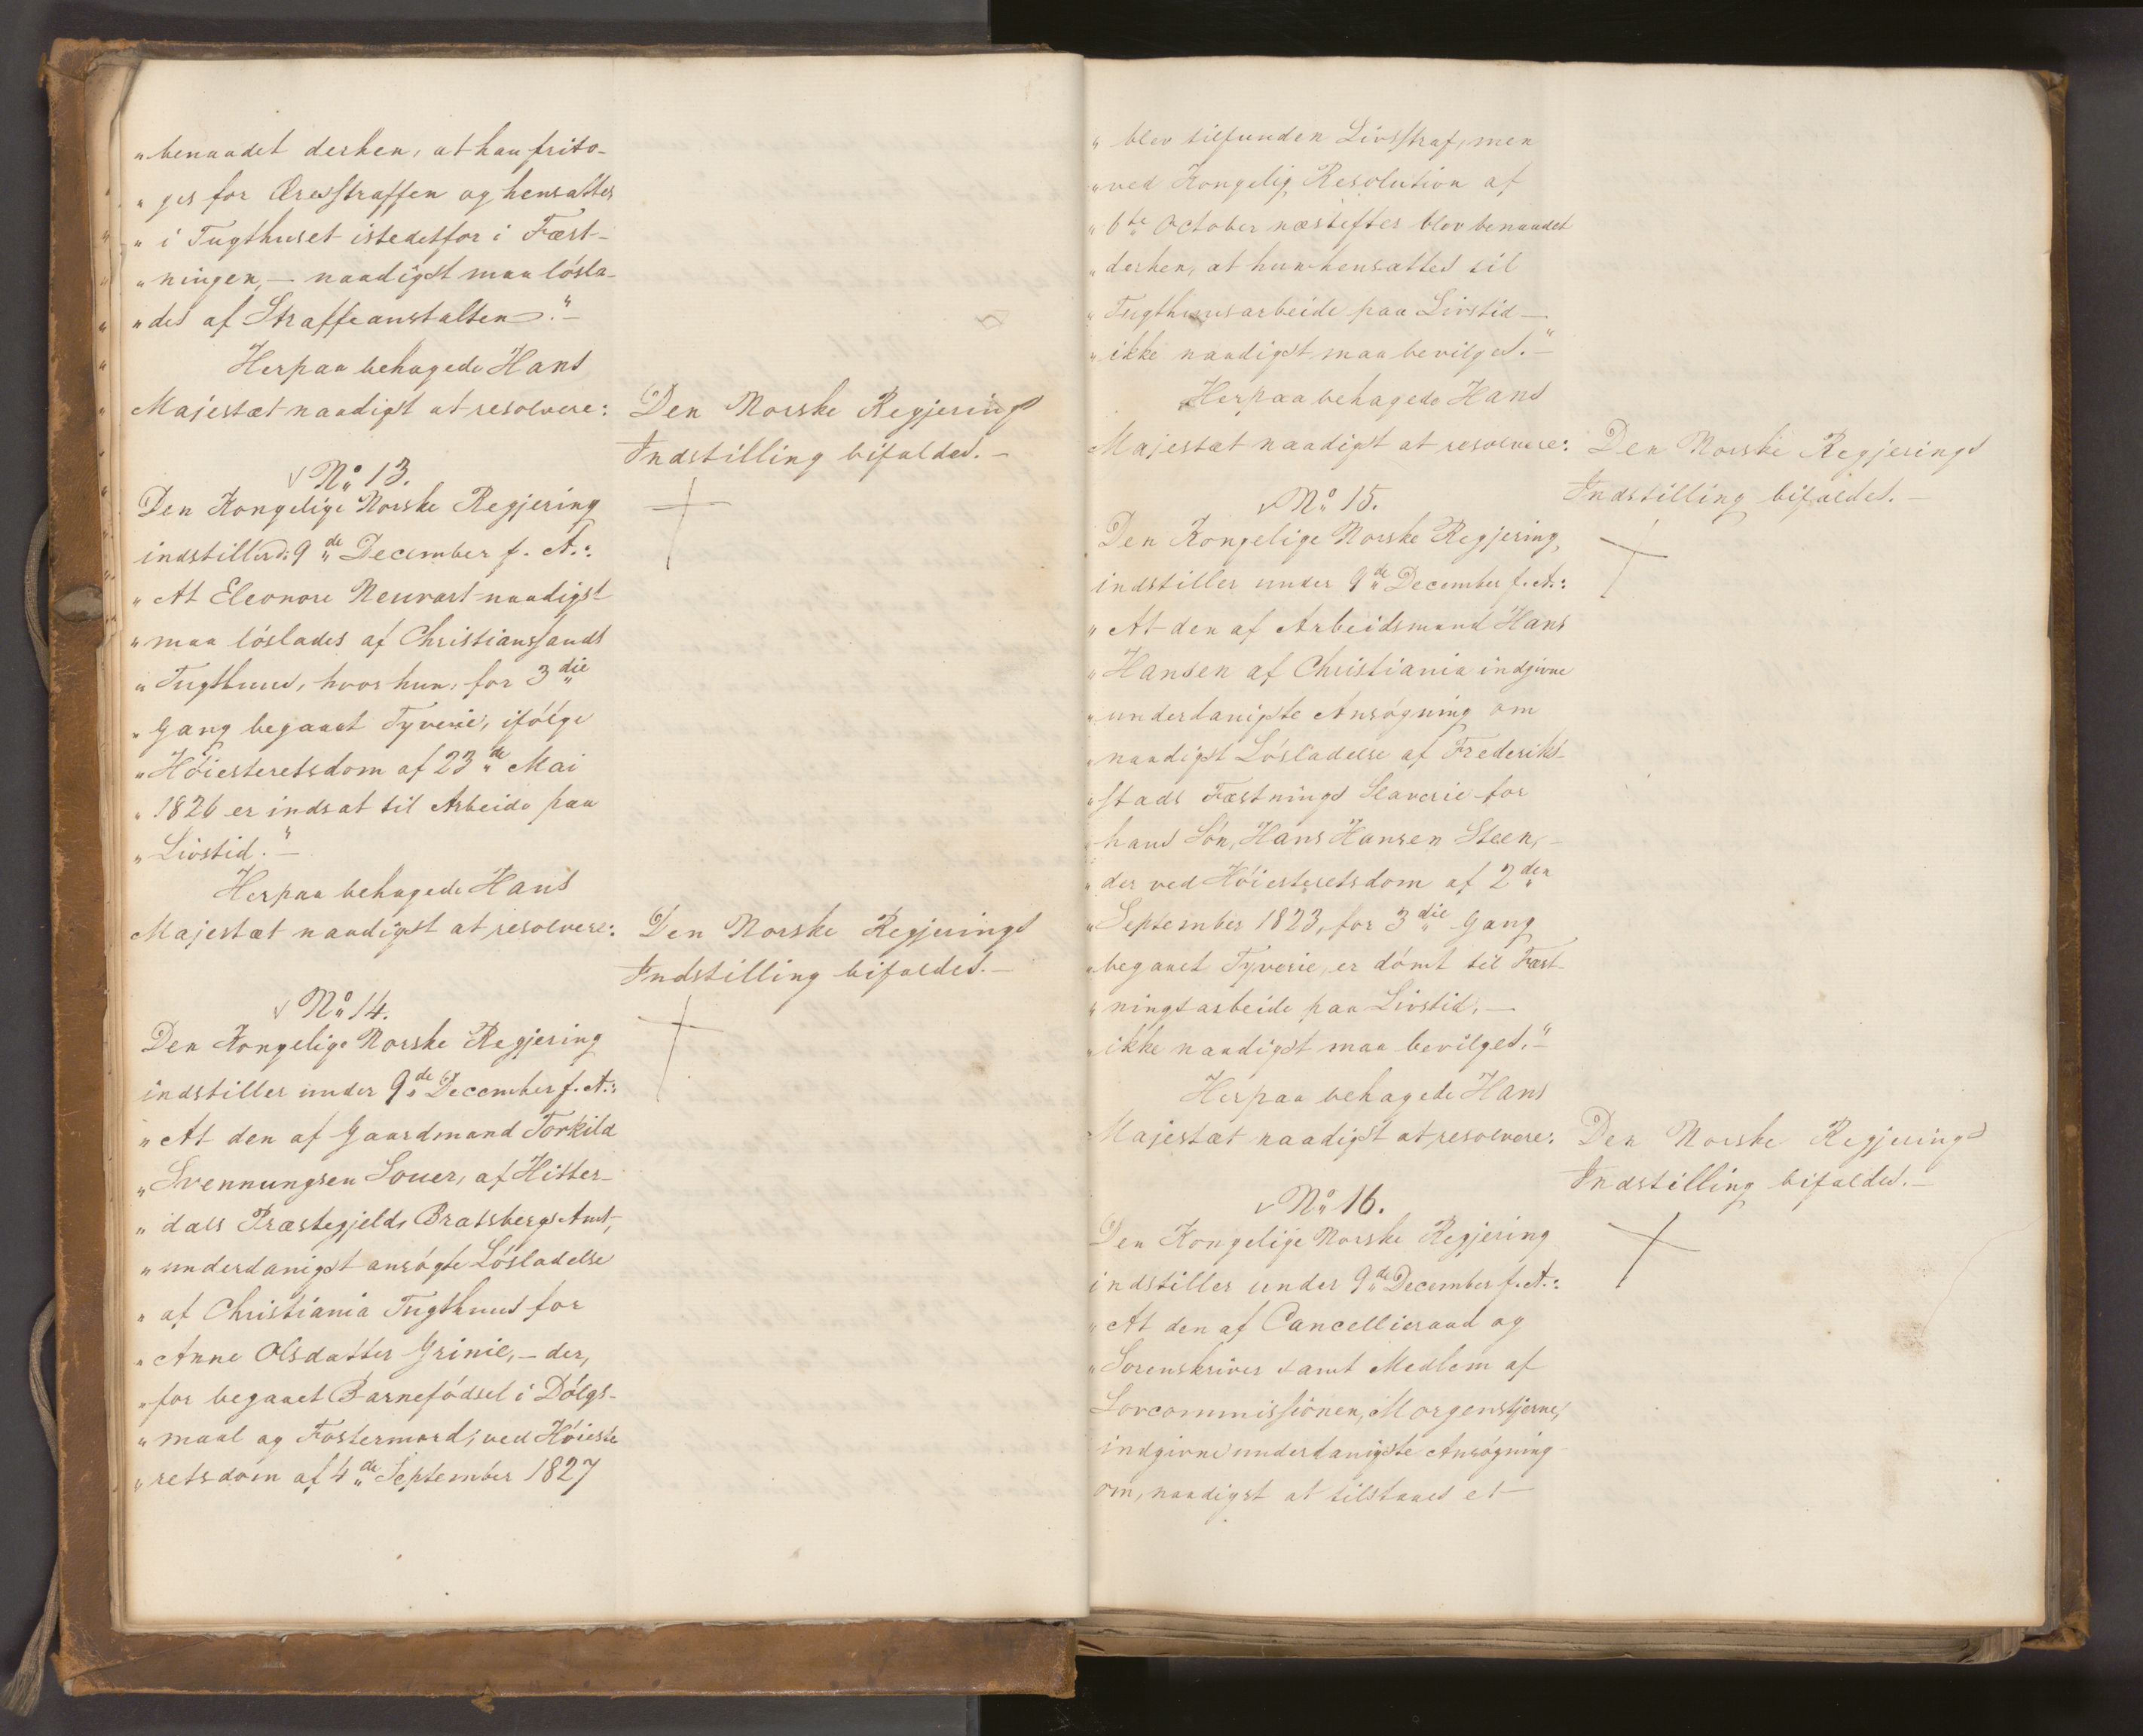 „benaadet derhen, at han frito-
„ges for Æresstraffen og hensattes
„i Tugthuset istedetfor i Fæst-
„ningen, — naadigst maa lösla-
„des af Straffeanstalten." —
Herpaa behagede Hans
Majestæt naadigst at resolvere:
Den Norske Regjerings
Indstilling bifaldes. —
No 13.
Den Kongelige Norske Regjering
indstiller 9de December f. A.:
„At Eleonore Neuvart naadigst
„maa löslades af Christianssands
„Tugthuus, hvor hun, for 3die
„Gang begaaet Tyverie, ifölge
„Höiesteretsdom af 23de Mai
„1826 er indsat til Arbeide paa
„Livstid." —
Herpaa behagede Hans
Majestæt naadigst at resolvere:
Den Norske Regjerings
Indstilling bifaldes. —
No 14.
Den Kongelige Norske Regjering
indstiller under 9de December f. A.:
„At den af Gaardmand Torkild
„Svennungsen Souer, af Hitter-
„dals Præstegjeld, Bratsbergs Amt,
„underdanigst ansögte Lösladelse
„af Christiania Tugthuus for
„Anne Olsdatter Grinie, — der,
„for begaaet Barnefödsel i Dölgs-
„maal og Fostermord, ved Höieste
„retsdom af 4de September 1827
„blev tilfunden Livsstraf, men
„ved Kongelig Resolution af
„6te October næstefter blev benaadet
„derhen, at hun hensattes til
„Tugthuusarbeide paa Livstid —
„ikke naadigst maa bevilges." —
Herpaa behagede Hans
Majestæt naadigst at resolvere:
Den Norske Regjerings
Indstilling bifaldes. —
No 15.
Den Kongelige Norske Regjering,
indstiller under 9de December f. A.:
„At den af Arbeidsmand Hans
„Hansen af Christiania indgivne
„underdanigste Ansögning om
„naadigst Lösladelse af Frederik-
„stads Fæstnings Slaverie for
„hans Sön, Hans Hansen Steen, —
„der ved Höiesteretsdom af 2den
„September 1823, for 3die Gang
„begaaet Tyverie, er dömt til Fæst-
„ningsarbeide paa Livstid, —
„ikke naadigst maa bevilges." —
Herpaa behagede Hans
Majestæt naadigst at resolvere:
Den Norske Regjerings
Indstilling bifaldes. —
No 16.
Den Kongelige Norske Regjering
indstiller under 9de December f. A.:
„At den af Cancellieraad og
„Sorenskriver samt Medlem af
Lovcommissionen, Morgenstjerne,
indgivne underdanigste Ansögning
om, naadigst at tilstaaes et